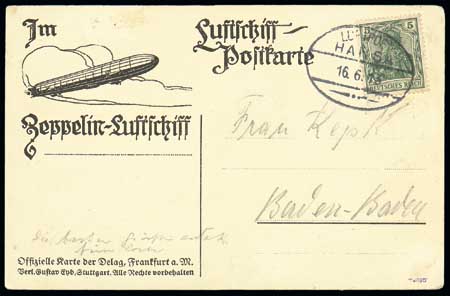 Im
Luftschiff-
Postkarte
Zeppelin-Luftschiff
LUFTSCHIFF
HANSA
16.6.
5
DEUTSCHES REICH
Frau
Baden-Baden
Offizielle Karte der Delag, Frankfurt a. M.
Verl. Gustav Eyb, Stuttgart. Alle Rechte vorbehalten